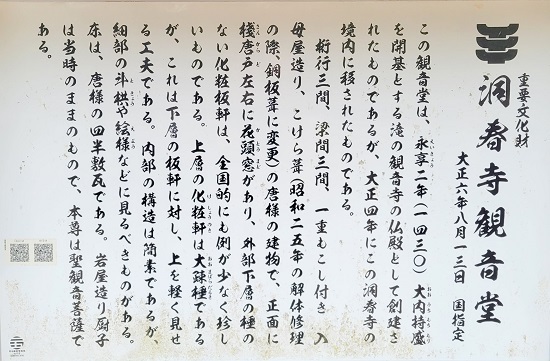 重要文化財
洞春寺観音堂
大正六年八月一三日 国指定
この観音堂は、永享二年(一四三〇)大内持盛
を開基とする滝の観音寺の仏殿として創建さ
れたものであるが、大正四年にこの洞春寺の
境内に移されたものである。
桁行三間、梁間三間、一重もこし付き 入
母屋造り、こけら葺(昭和二五年の解体修理
の際、銅板葺に変更)の唐様の建物で、正面に
棧唐戸左右に花頭窓があり、外部下層の種の
ない化粧板軒は、全国的にも例が少なく珍し
いものである。上層の化粧軒は大疎種である
が、これは下層の板軒に対し、上を軽く見せ
る工夫である。内部の構造は簡素であるが、
細部の斗栱や絵様などに見るべきものがある。
床は、唐様の四半敷瓦である。岩屋造り厨子
は当時のままのもので、本尊は聖観音菩薩で
ある。